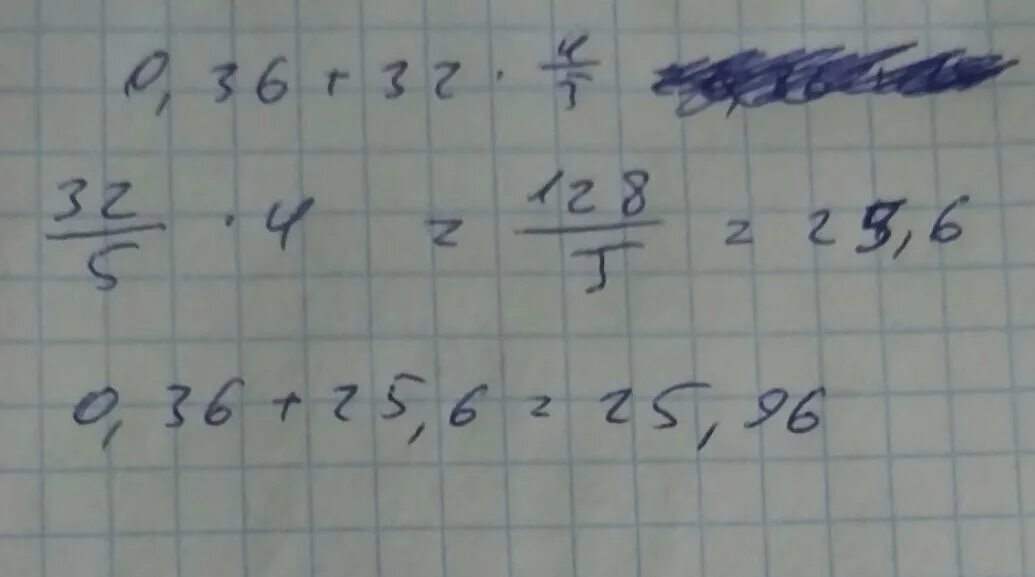 0,36 + 32 · 4/5
32/5 · 4 = 128/5 = 25,6
0,36 + 25,6 = 25,96